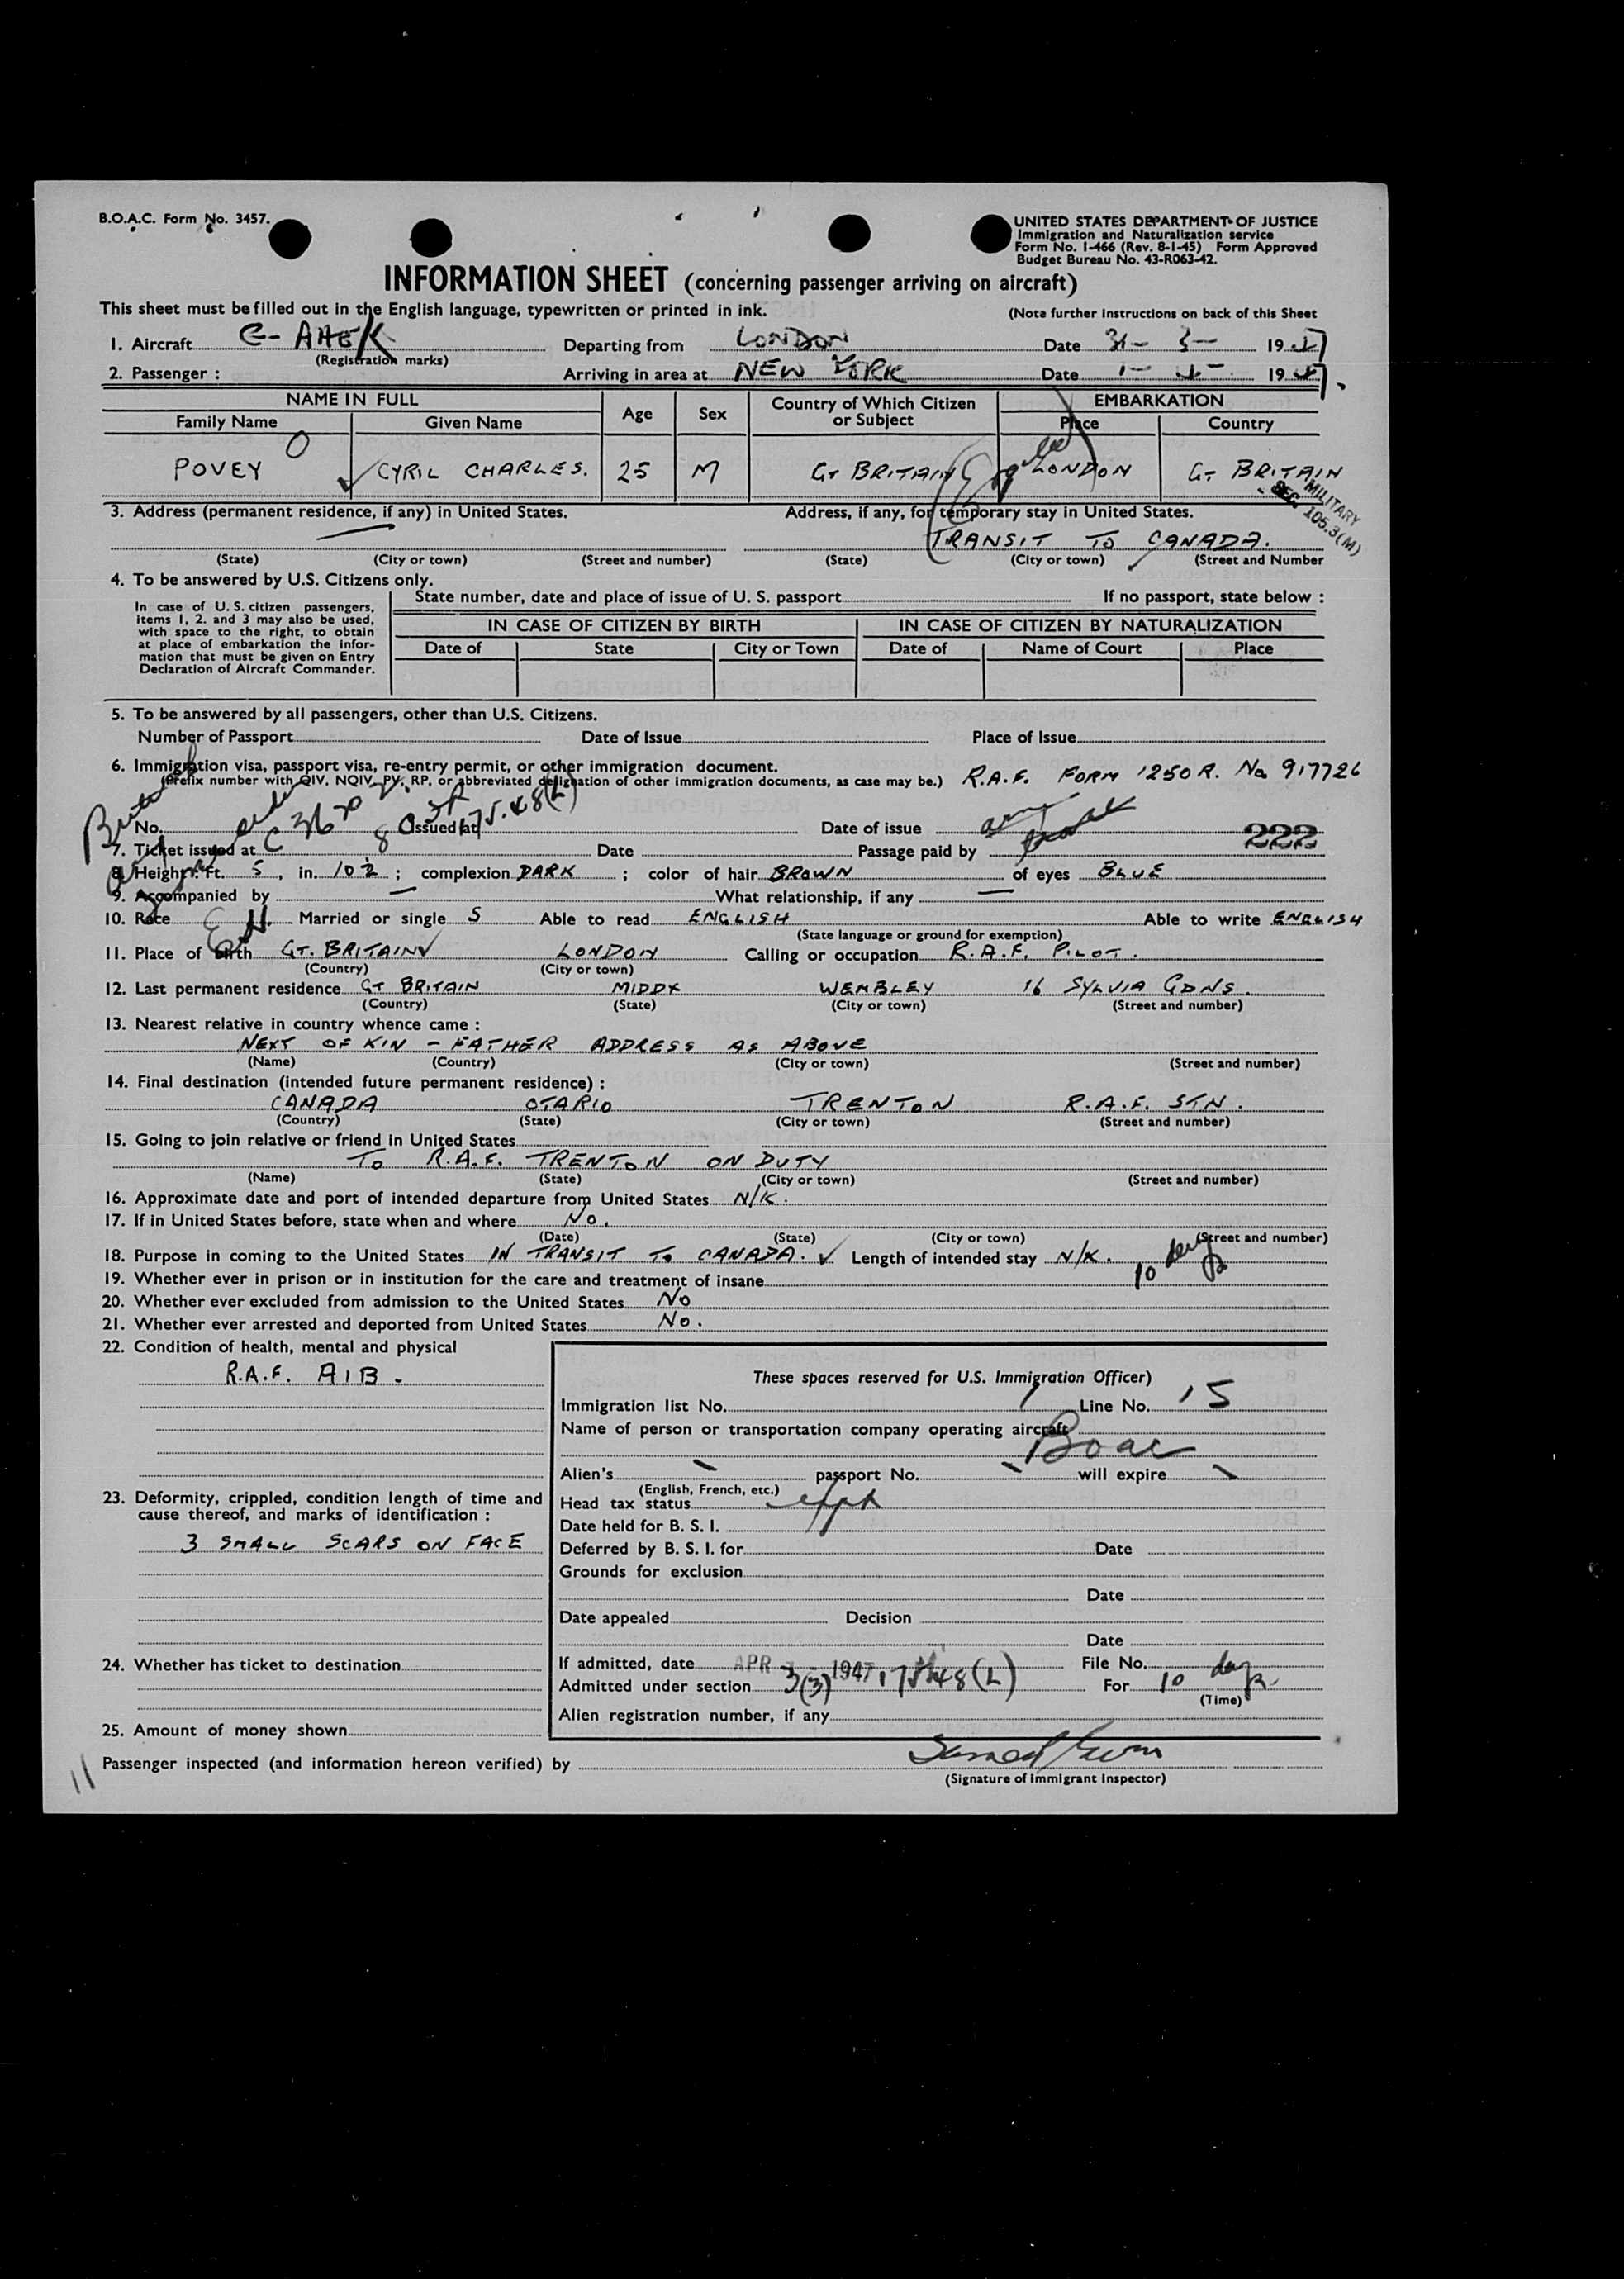 B.O.A.C. Form No. 3457.
UNITED STATES DEPARTMENT OF JUSTICE
Immigration and Naturalization service
Form No. I-466 (Rev. 8-1-45) Form Approved
Budget Bureau No. 43-R063-42.
INFORMATION SHEET (concerning passenger arriving on aircraft)
This sheet must be filled out in the English language, typewritten or printed in ink. (Note further instructions on back of this Sheet
1. Aircraft G-AHEK Departing from LONDON Date 31-3- 1947
(Registration marks)
2. Passenger : Arriving in area at NEW YORK Date 1-4- 1947.
NAME IN FULL Age Sex Country of Which Citizen or Subject EMBARKATION
Family Name Given Name Place Country
POVEY O ✓ CYRIL CHARLES. 25 M GT BRITAIN LONDON GT BRITAIN
MILITARY
SEC. 105.3(M)
3. Address (permanent residence, if any) in United States. Address, if any, for temporary stay in United States.
— TRANSIT TO CANADA.
(State) (City or town) (Street and number) (State) (City or town) (Street and Number
4. To be answered by U.S. Citizens only.
In case of U.S. citizen passengers, items 1, 2. and 3 may also be used, with space to the right, to obtain at place of embarkation the information that must be given on Entry Declaration of Aircraft Commander.
State number, date and place of issue of U. S. passport If no passport, state below :
IN CASE OF CITIZEN BY BIRTH IN CASE OF CITIZEN BY NATURALIZATION
Date of State City or Town Date of Name of Court Place
5. To be answered by all passengers, other than U.S. Citizens.
Number of Passport Date of Issue Place of Issue
6. Immigration visa, passport visa, re-entry permit, or other immigration document.
(Prefix number with QIV, NQIV, PV, RP, or abbreviated designation of other immigration documents, as case may be.) R.A.F. FORM 1250R. No 917726
No. Issued at Date of issue
7. Ticket issued at Date Passage paid by 222
8. Height: Ft. 5, in. 10½; complexion DARK; color of hair BROWN of eyes BLUE
9. Accompanied by — What relationship, if any —
10. Race Married or single S Able to read ENGLISH Able to write ENGLISH
(State language or ground for exemption)
11. Place of Birth GT. BRITAIN LONDON Calling or occupation R.A.F. PILOT.
(Country) (City or town)
12. Last permanent residence GT BRITAIN MIDDX WEMBLEY 16 SYLVIA GDNS.
(Country) (State) (City or town) (Street and number)
13. Nearest relative in country whence came :
NEXT OF KIN - FATHER ADDRESS AS ABOVE
(Name) (Country) (City or town) (Street and number)
14. Final destination (intended future permanent residence) :
CANADA OTARIO TRENTON R.A.F. STN.
(Country) (State) (City or town) (Street and number)
15. Going to join relative or friend in United States
TO R.A.F. TRENTON ON DUTY
(Name) (State) (City or town) (Street and number)
16. Approximate date and port of intended departure from United States N/K.
17. If in United States before, state when and where No.
(Date) (State) (City or town) (Street and number)
18. Purpose in coming to the United States IN TRANSIT TO CANADA. ✓ Length of intended stay N/K. 10 days
19. Whether ever in prison or in institution for the care and treatment of insane
20. Whether ever excluded from admission to the United States No
21. Whether ever arrested and deported from United States No.
22. Condition of health, mental and physical
R.A.F. A1B.
23. Deformity, crippled, condition length of time and cause thereof, and marks of identification :
3 SMALL SCARS ON FACE
24. Whether has ticket to destination
25. Amount of money shown
These spaces reserved for U.S. Immigration Officer)
Immigration list No. 1 Line No. 15
Name of person or transportation company operating aircraft
Boac
Alien's passport No. will expire
(English, French, etc.)
Head tax status
Date held for B. S. I.
Deferred by B. S. I. for Date
Grounds for exclusion
Date
Date appealed Decision
Date
If admitted, date APR 1947 File No.
Admitted under section 3(3) 175.48(L) For 10 days
(Time)
Alien registration number, if any
11 Passenger inspected (and information hereon verified) by
(Signature of Immigrant Inspector)